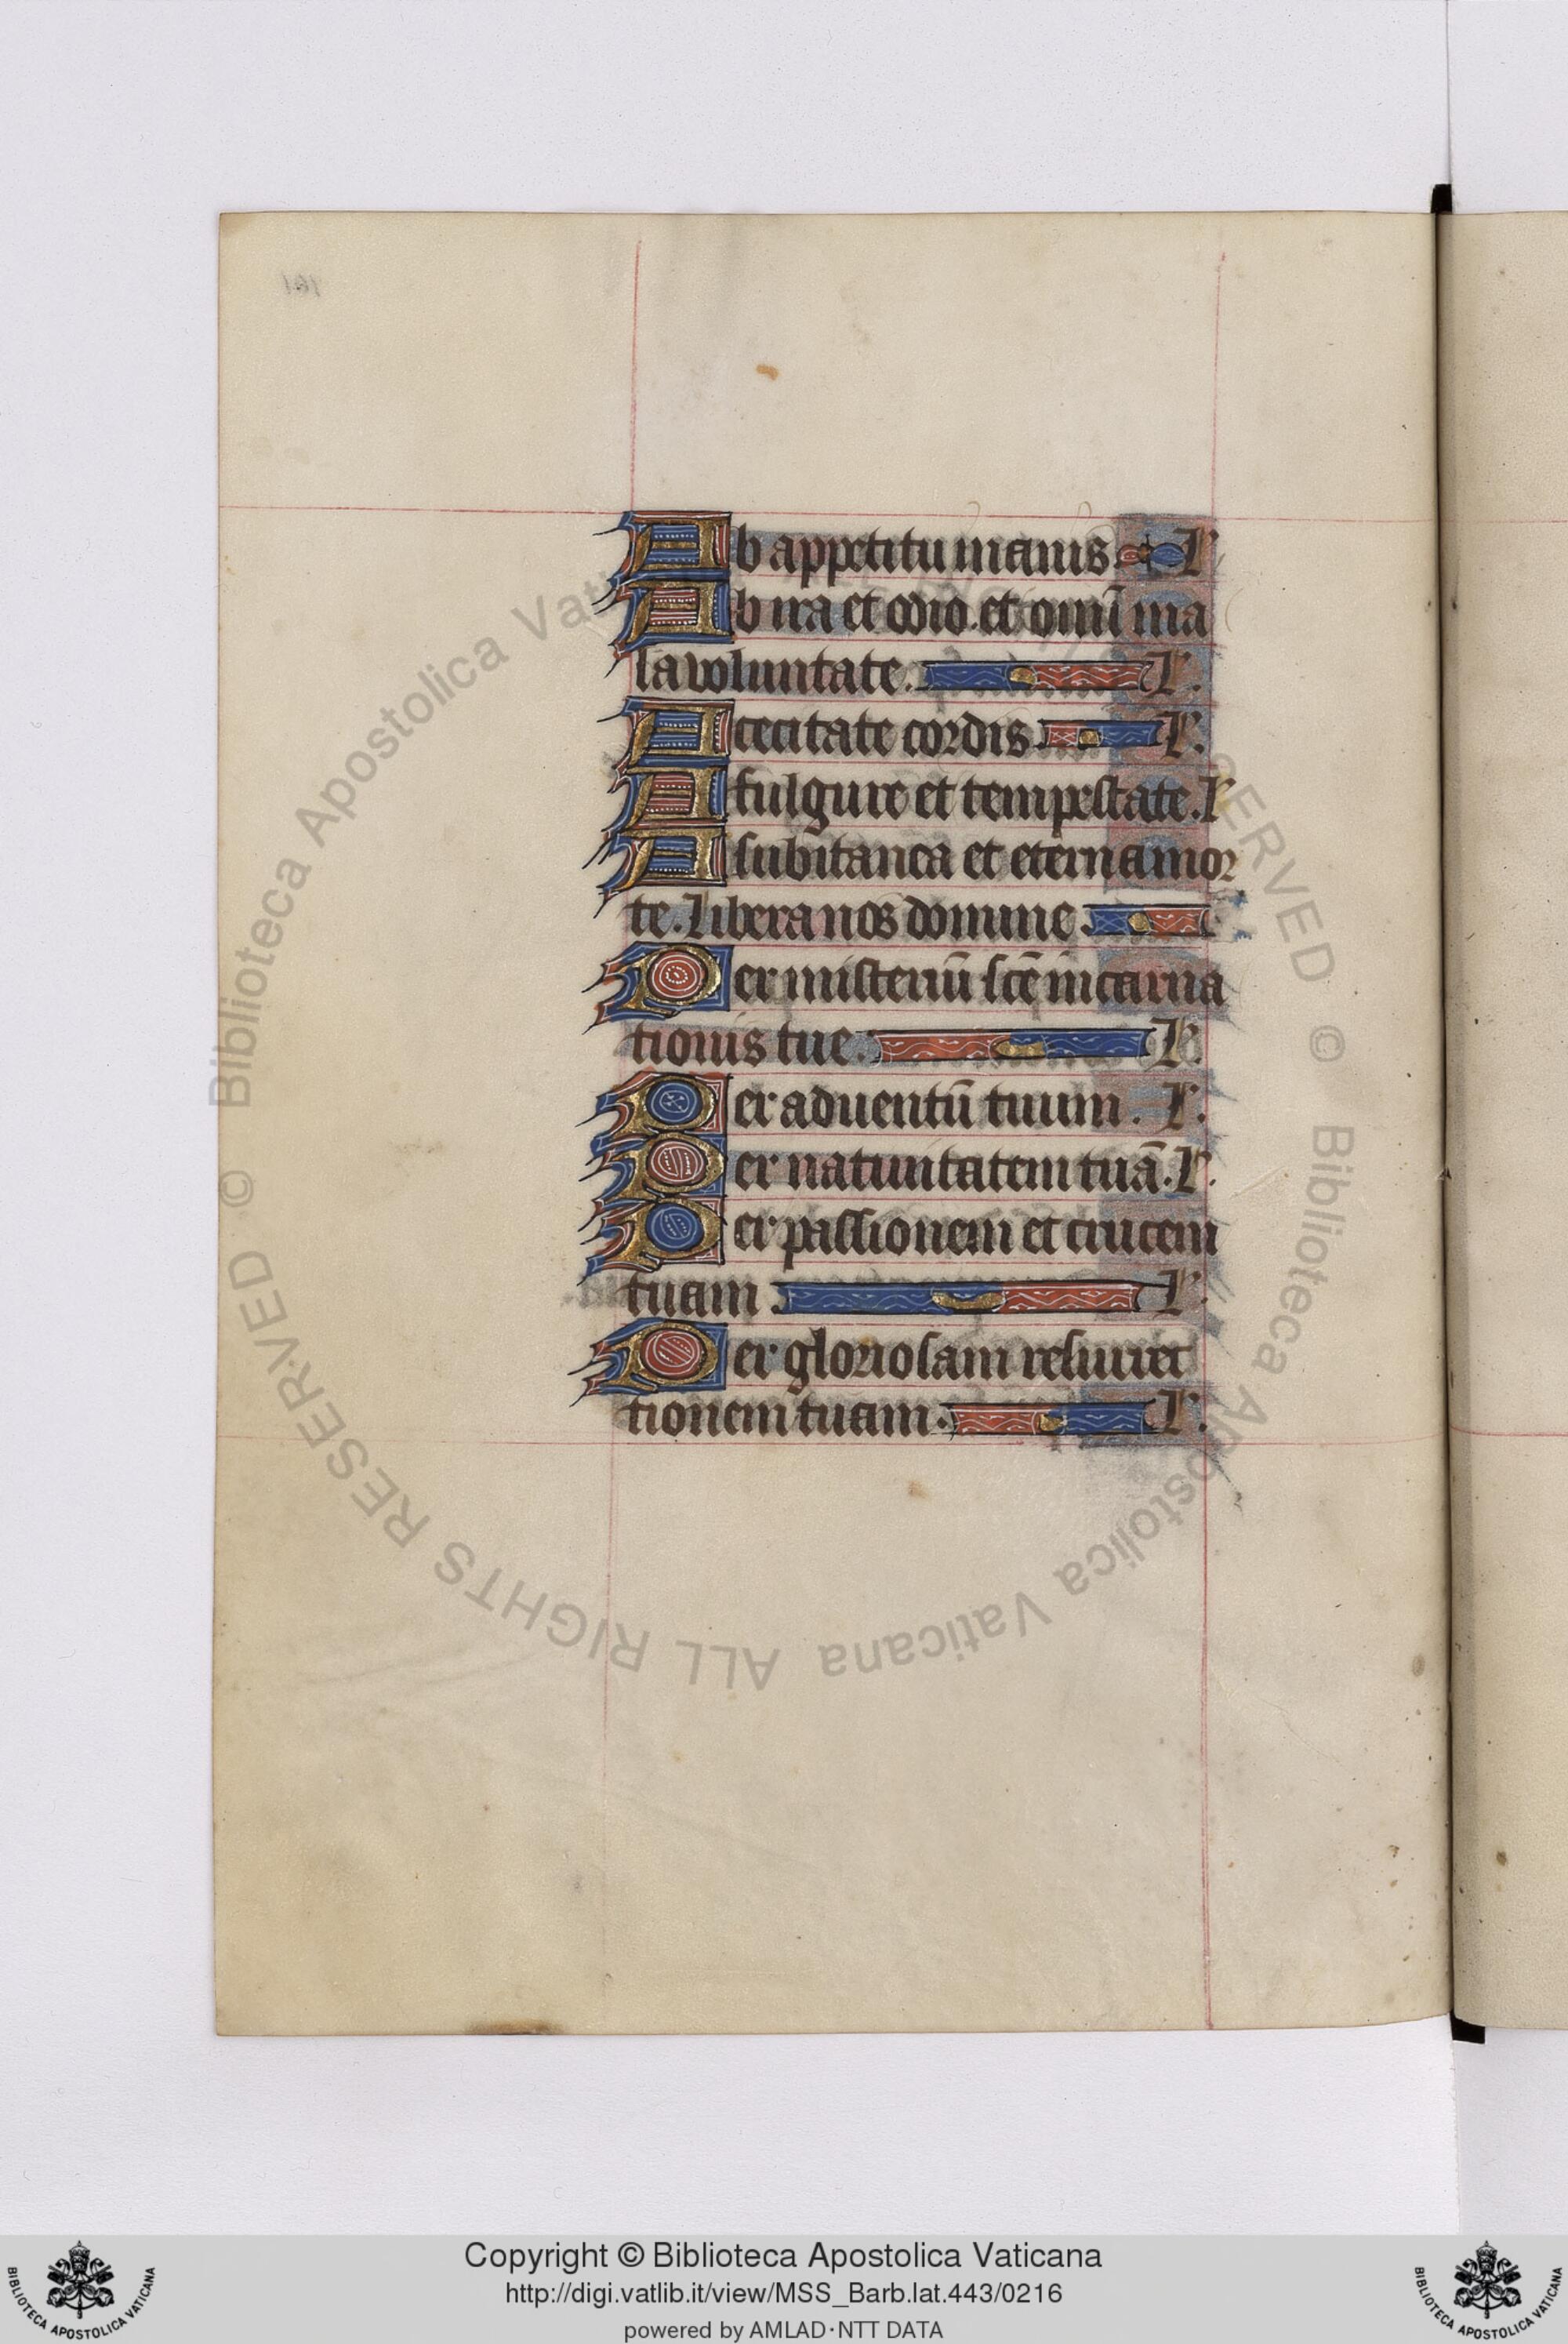 Ab appetitu inanis. L.
Ab ira et odio. et omī ma
la voluntate. L.
A cecitate cordis L.
A fulgure et tempestate. L
A subitanea et eterna mor
te. Libera nos domine
Per misteriū scē incarna
tionis tue. L.
Per aduentū tuum. L.
Per natiuitatem tuā. L.
Per passionem et crucem
tuam L.
Per gloriosam resurrec
tionem tuam. L.
© Biblioteca Apostolica Vaticana ALL RIGHTS RESERVED © Biblioteca Apostolica Vaticana ALL RIGHTS RESERVED
Copyright © Biblioteca Apostolica Vaticana
http://digi.vatlib.it/view/MSS_Barb.lat.443/0216
powered by AMLAD·NTT DATA
BIBLIOTECA APOSTOLICA VATICANA
BIBLIOTECA APOSTOLICA VATICANA